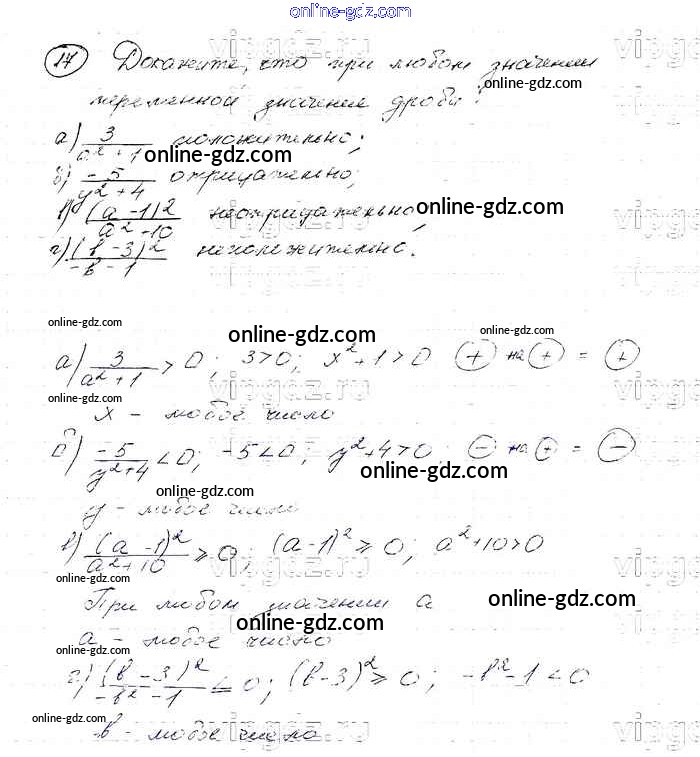 online-gdz.com
17 Докажите, что при любом значении
online-gdz.com
переменной значение дроби:
а) 3/(a²+1) положительно;
online-gdz.com
б) -5/(y²+4) отрицательно;
в) (a-1)²/(a²+10) неотрицательно;
online-gdz.com
г) (b-3)²/(-b-1) неположительно.
online-gdz.com
online-gdz.com
online-gdz.com
online-gdz.com
а) 3/(a²+1) > 0; 3>0; x²+1>0 (+) на (+) = (+)
vipgdz.ru
online-gdz.com
x - любое число
б) -5/(y²+4) < 0; -5<0; y²+4>0 (-) на (+) = (-)
online-gdz.com
online-gdz.com
y - любое число
в) (a-1)²/(a²+10) ⩾ 0; (a-1)² ⩾ 0; a²+10>0
vipgdz.ru
online-gdz.com
При любом значении a
online-gdz.com
online-gdz.com
a - любое число
online-gdz.com
г) (b-3)²/(-b²-1) ≤ 0; (b-3)² ⩾ 0; -b²-1<0
online-gdz.com
b - любое число
online-gdz.com